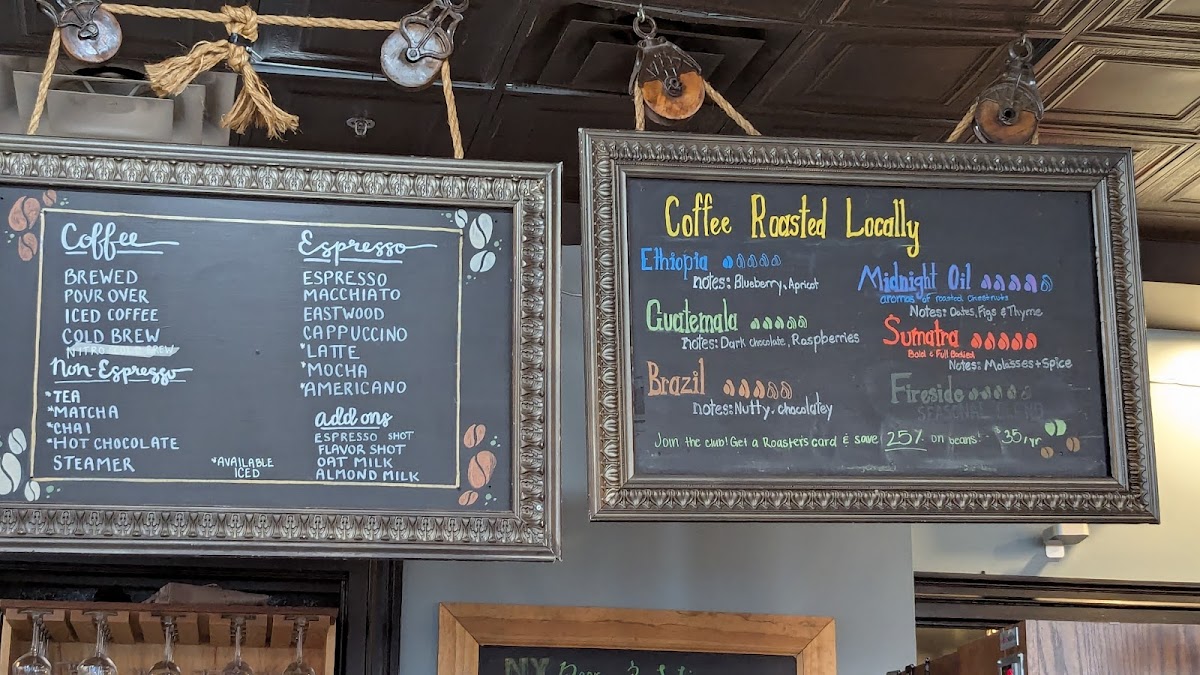 Coffee
BREWED
POUR OVER
ICED COFFEE
COLD BREW
NITRO COLD BREW
Non-Espresso
*TEA
*MATCHA
*CHAI
*HOT CHOCOLATE
STEAMER
*AVAILABLE
ICED
Espresso
ESPRESSO
MACCHIATO
EASTWOOD
CAPPUCCINO
*LATTE
*MOCHA
*AMERICANO
add ons
ESPRESSO SHOT
FLAVOR SHOT
OAT MILK
ALMOND MILK
Coffee Roasted Locally
Ethiopia
notes: Blueberry, Apricot
Guatemala
notes: Dark chocolate, Raspberries
Brazil
notes: Nutty, chocolatey
Midnight Oil
aromas of roasted chestnuts
Notes: Dates, Figs & Thyme
Sumatra
Bold & Full Bodied
Notes: Molasses + Spice
Fireside
SEASONAL BLEND
Join the club! Get a Roaster's card & save 25% on beans! - $35/yr
NY